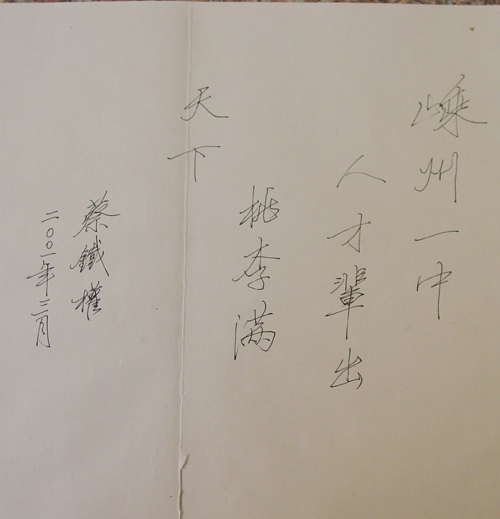 嵊州一中
人才輩出
桃李满
天下
蔡鐵權
二〇〇一年三月